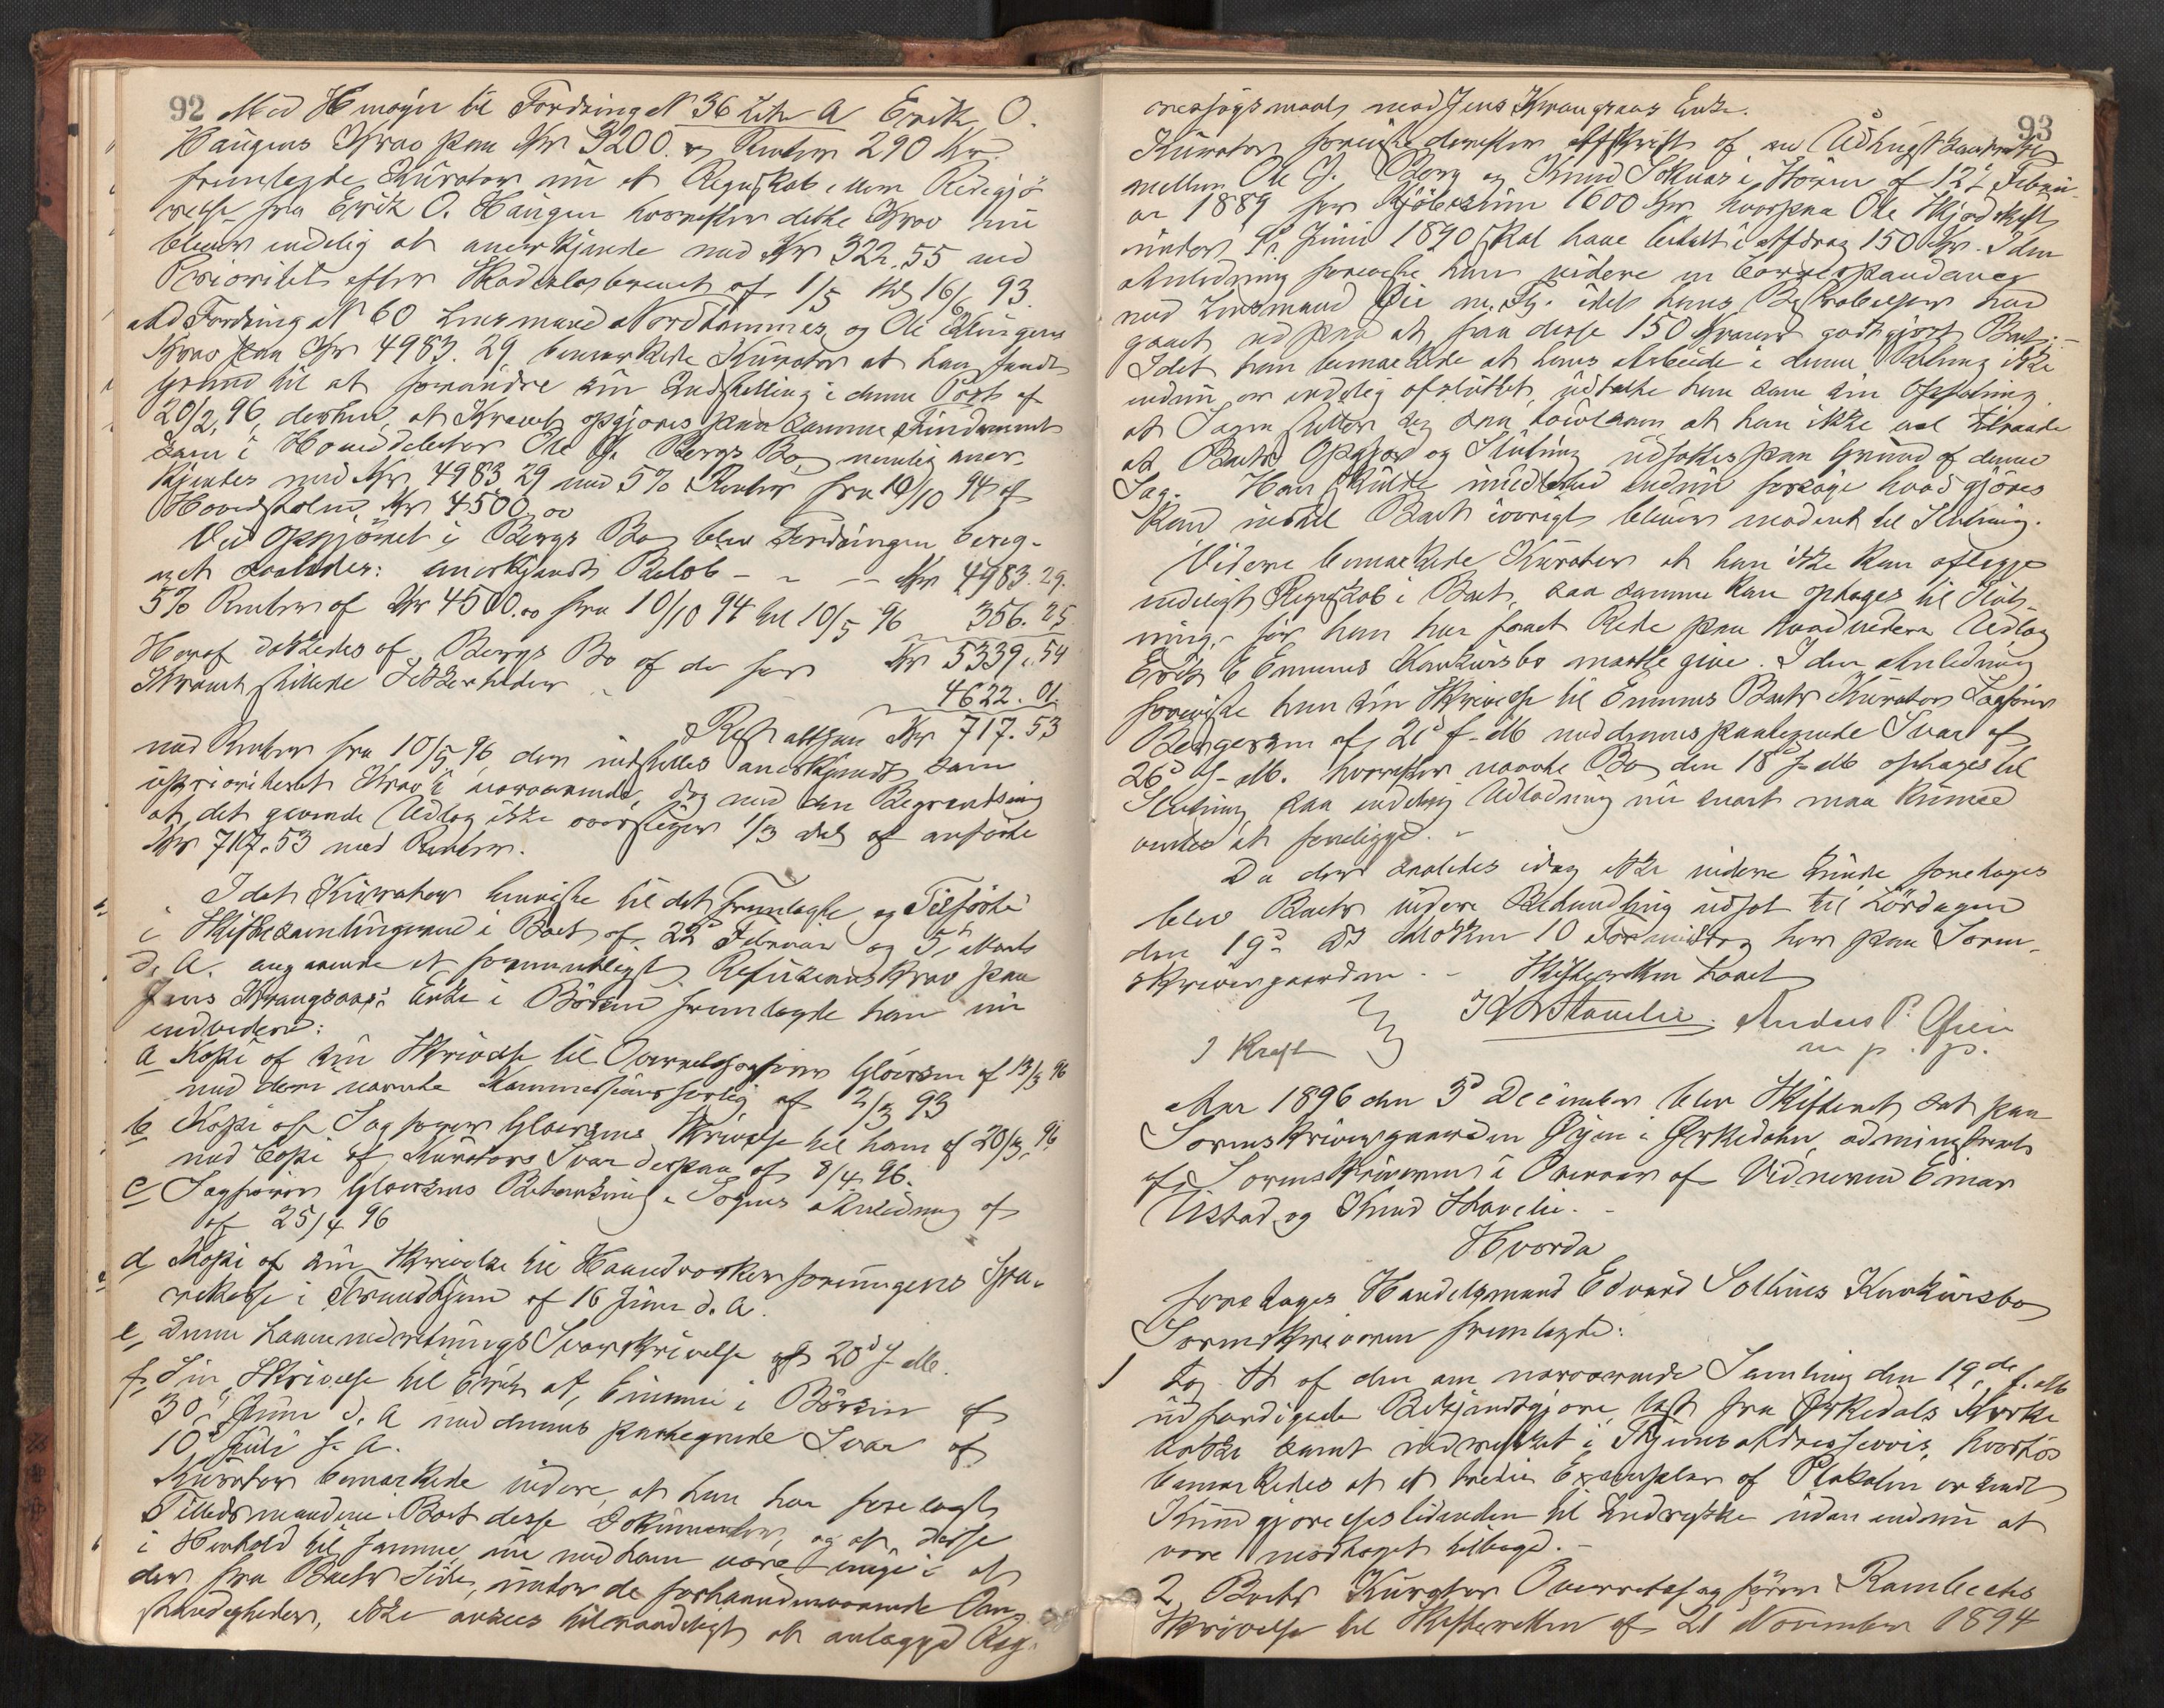 92 Med Hensyn til Fordring N 36 Litr A Erik O.
Haugens Krav paa Kr 3200. og Renter 290 Kr.
fremlagde Kurator nu et Regnskab eller Redegjö-
relse fra Erik O. Haugen hvorefter dette Krav nu
bliver endelig at anerkjende med Kr 322.55 med
Prioritet efter Skadeslösbrevet af 1/5 16/6 93.
Ad Fordring N 60 Lensmand Nordhammer og Ole Klingens
Krav paa Kr 4983.29 bemærkede Kurator at han fandt
Grund til at forandre sin Indstilling i denne Post af
20/2 96, derhen, at Kravet opgjöres paa samme Fundament
som i Hoveddebitor Ole J. Bergs Bo, nemlig aner-
kjendes med Kr 4983.29 med 5% Renter fra 10/10 94 af
Hovedstolen Kr 4500,00
Ved Opgjöret i Bergs Bo blev Fordringen bereg-
net saaledes: anerkjendt Belöb - - - Kr 4983.29.
5% Renter af Kr 4500.00 fra 10/10 94 til 10/5 96 356.25
Kr 5339.54
Heraf dækkedes af Bergs Bo af de for
Kravet stillede Sikkerheder 4622.01
Rest altsaa Kr 717.53
med Renter fra 10/5 96 der indstilles anerkjendt som
uprioriteret Krav i nærværende, dog med den Begrænsning
at det givende Udlæg ikke overstiger 1/3 del af anförte
Kr 717.53 med Renter.
I det Kurator henviste til det Fremlagte og Tilförte
i Skiftesamlingerne i Boet af 22d Februar og 5t Marts
d. A. angaaende et formentligt Refusionskrav paa
Jens Krangsaas' Enke i Börsen fremlagde han nu
endvidere:
a Kopi af sin Skrivelse til Overretssagförer Glöersen af 13/3 96
med dem nævnte Kommissionsforlig af 2/3 93
b Kopi af Sagförer Gloersens Skrivelse til ham af 20/3 96
med Copi af Kurators Svar derpaa af 8/4 96.
c Sagförer Gloersens Betænkning i Sagens Anledning af
af 25/4 96
d Kopi af sin Skrivelse til Haandværkerforeningens Spa-
rekasse i Trondhjem af 16 Juni d. A.
e, Denne Laaneindretnings Svarskrivelse af 20d f. M.
f, Sin Skrivelse til Erik E. Emmen i Börsen af
30te Juni d. A med dennes paategnede Svar af
10d Juli s. A.
Kurator bemærkede videre, at han har forelagt
Tillidsmændene i Boet disse Dokumenter, og at disse
i Henhold til samme nu med ham være enige i at
der fra Boets Side, under de forhaandenværende Om-
stændigheder, ikke ansees tilraadeligt at anlægge Reg-
93
ressögsmaal mod Jens Krangsaas Enke.
Kurator foreviste derefter Afskrift af en Udhugstkontrakt
mellem Ole J. Berg og Knud Solnæs i Hörsen af 12te Febru-
ar 1889 for Kjöbesum 1600 Kr. hvorpaa Ole Skjödskift
under 4. Juni 1890 skal have betalt i Afdrag 150 Kr. I den
Anledning foreviste han videre en Correspondance
med Lensmand Öie m. Fl. idet hans Bestræbelser har
gaaet ud paa at faa disse 150 Kroner godtgjort Boet. -
Idet han bemærkede at hans Arbeide i denne Retning ikke
endnu er endelig afsluttet, udtalte han som sin Opfatning
at Sagen stiller sig saa tvivlsom at han ikke vil tilraade
at Boets Opgjör og Slutning udsættes paa Grund af denne
Sag. Han skulde imidlertid endnu forsöge hvad gjöres
kan indtil Boet iövrigt bliver modent til Slutning.
Videre bemærkede Kurator at han ikke kan aflægge
endeligt Regnskab i Boet, saa samme kan optages til Slut-
ning, för han har faaet Rede paa hvad videre Udlæg
Erik E Emmens Konkursbo maatte give. I den Anledning
foreviste han sin Skrivelse til Emmens Boets Kurator Sagförer
Bergersen af 21d f. M. med dennes paategnede Svar af
26d f. M. hvorefter nævnte Bo den 18d f. M. optages til
Slutning, saa endelig Udlodning nu snart maa kunne
ventes at foreligge. -
Da der saaledes idag ikke videre kunde foretages
blev Boets videre Behandling udsat til Lördagen
den 19d ds Klokken 10 Formiddag her paa Soren-
skrivergaarden. - Skifteretten hævet
Anders P. Öien
m. p. p.
Aar 1896 den 3d December blev Skifteret sat paa
Sorenskrivergaarden Öyen i Örkedalen, administreret
af Sorenskriveren i Overvær af Vidnerne Einar
Ustad og Knud Skavlie. -
Hvorda
foretages Handelsmand Edvard Solliens Konkursbo
Sorenskriveren fremlagde:
1 Log. Et af den om nærværende Samling den 19de f. M.
udfærdigede Bekjendtgjörelse, læst fra Örkedals Kirke
bakke samt indrykket i Thjems Adresseavis, hvorhos
bemærkedes at et tredie Exemplar af Plakaten er sendt
Kundgjörelsestidenden til Indrykkelse uden endnu at
være modtaget tilbage. -
2 Boets Kurator Overretssagförer Rambechs
Skrivelse til Skifteretten af 21 November 1894